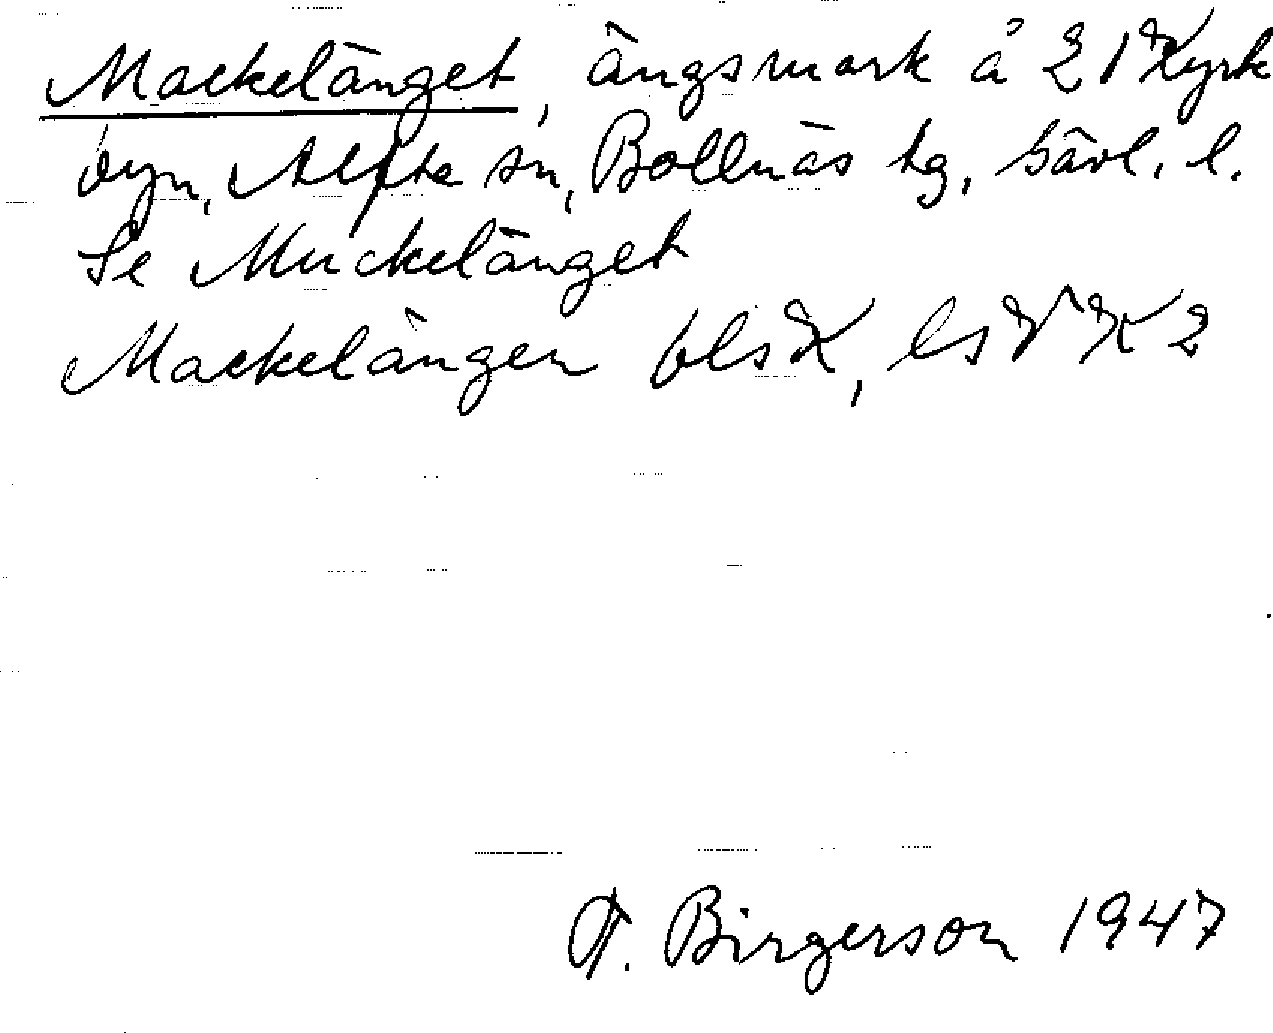 Mackelänget, ängsmark å 21 Kyrk
byn, Alfta sn, Bollnäs tg, Gävl. l.
Se Muckelänget
Mackelängen bls K, ls V K 2
T. Birgerson 1947